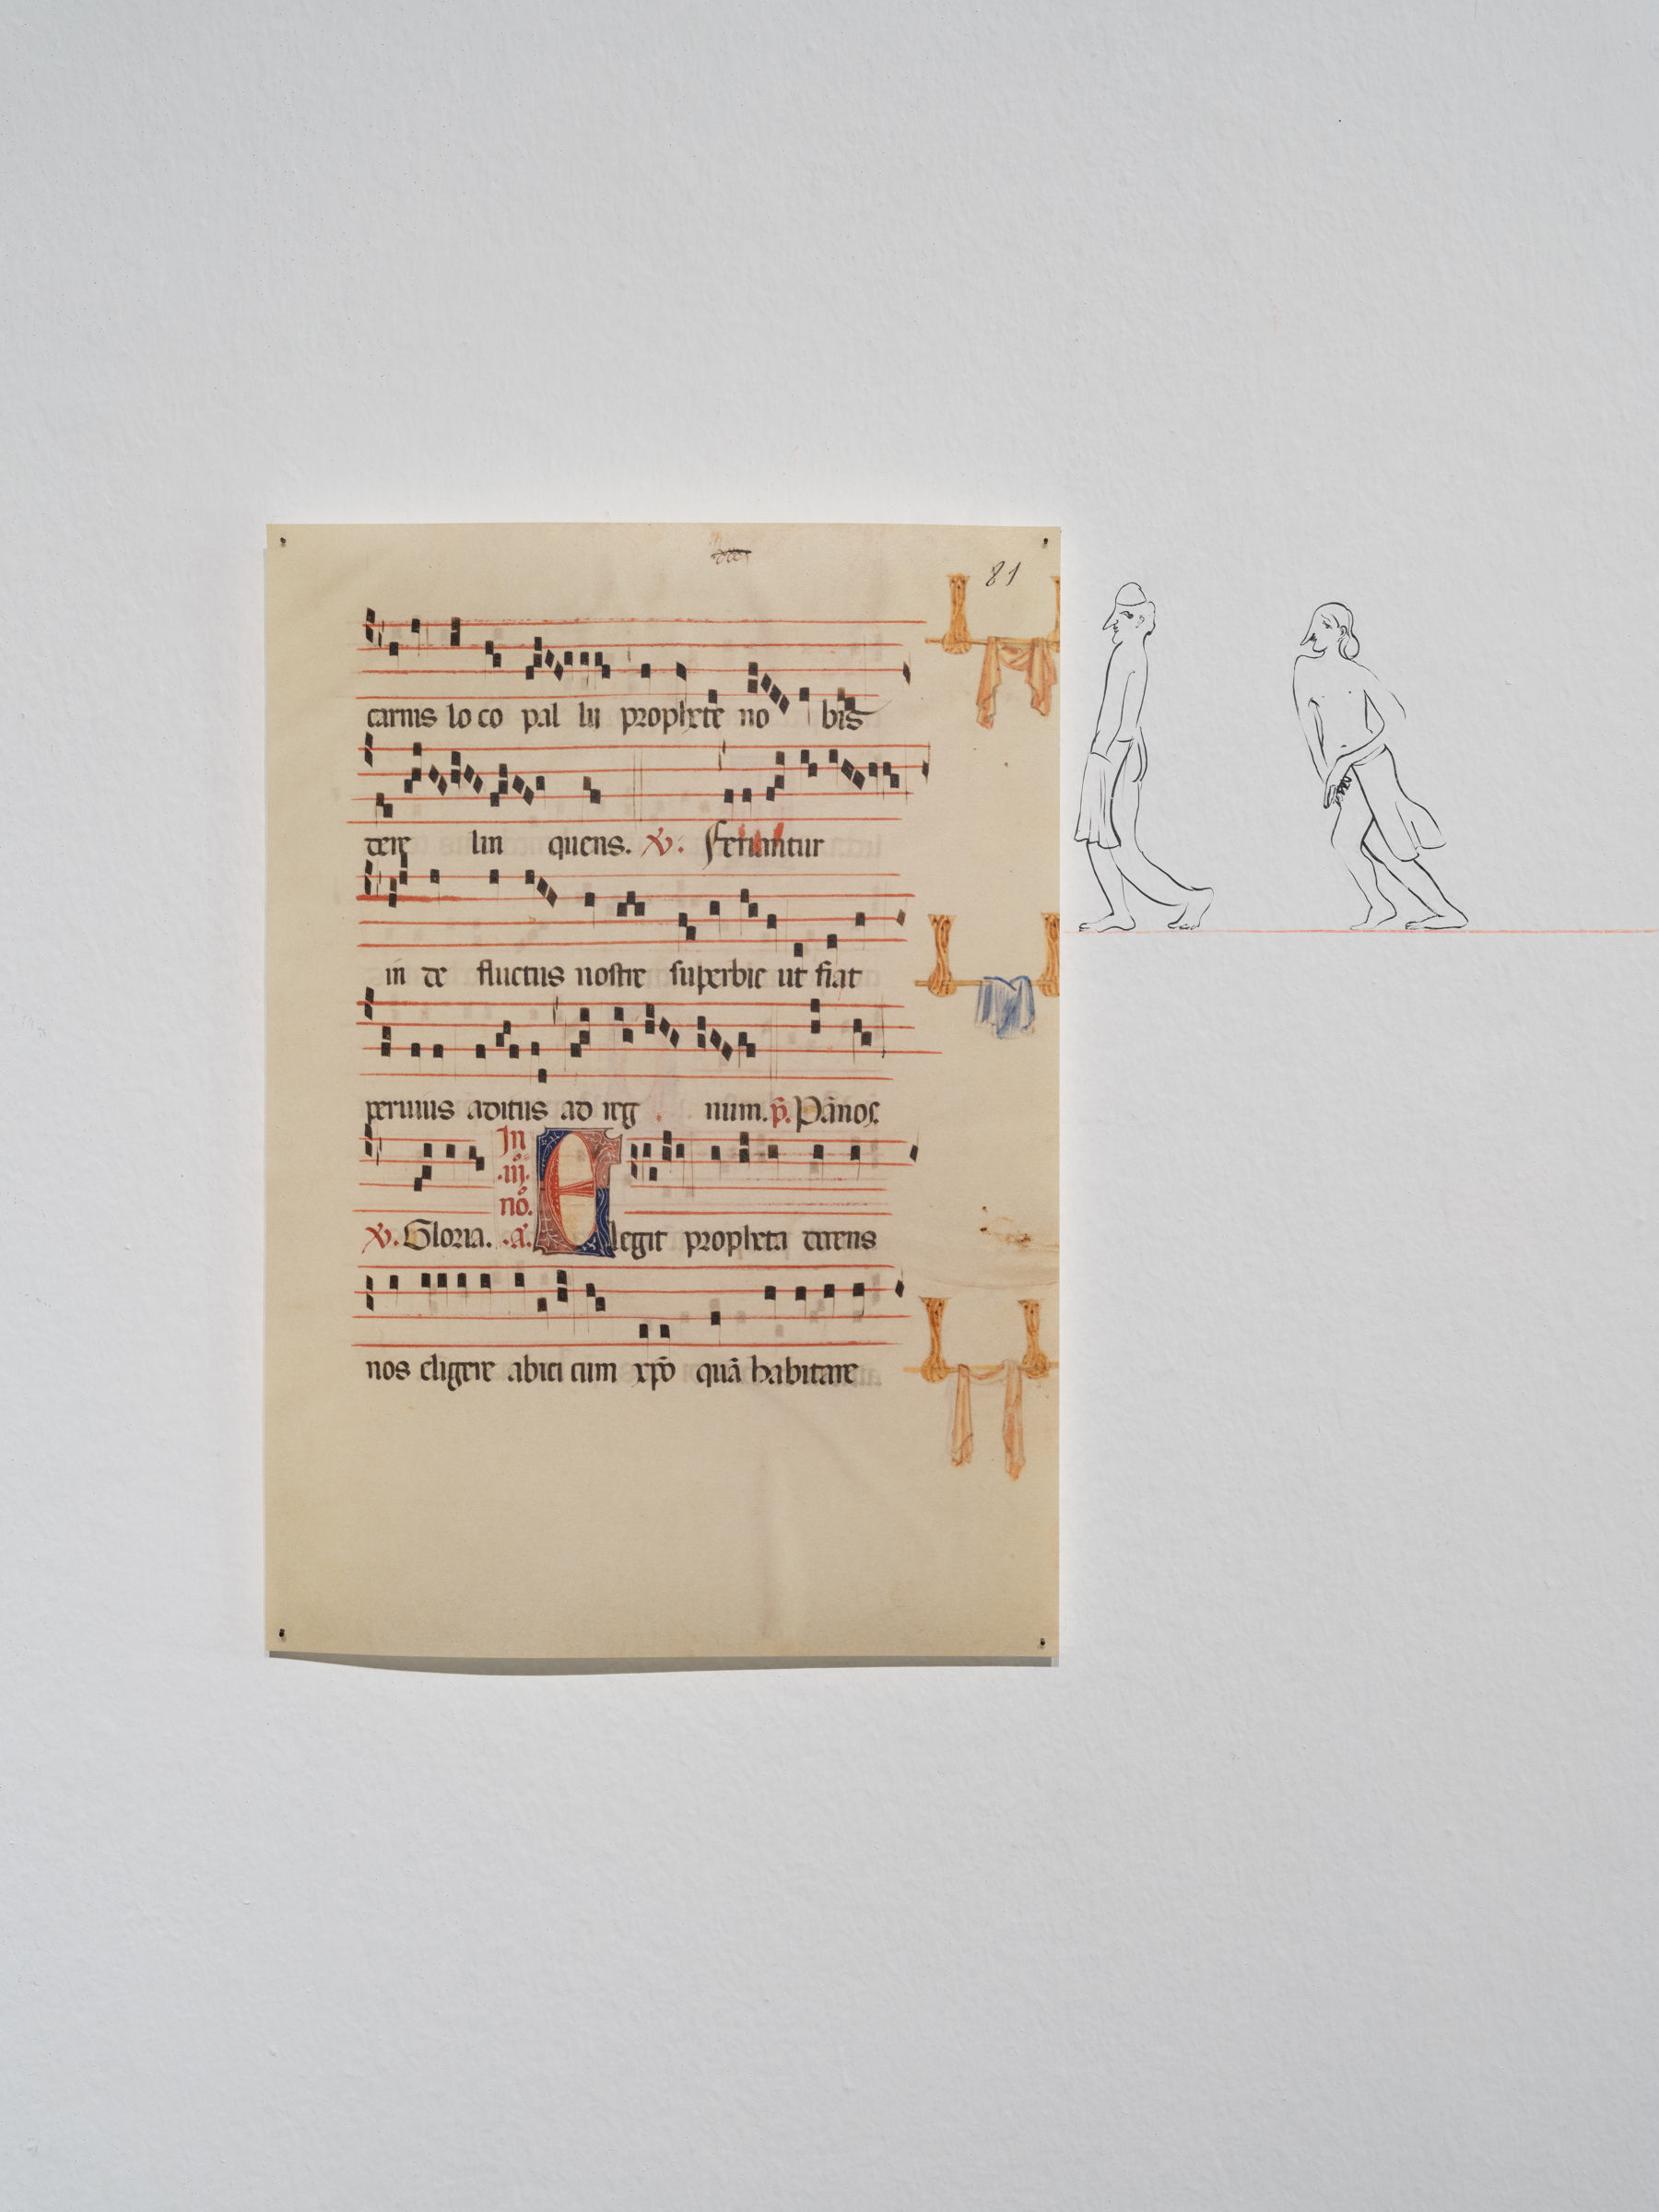 81
carnis lo co pal lij prophete no bis
dere lin quens. ℣. Feriuntur
in de fluctus nostre superbie ut fiat
peruius aditus ad reg num. p̃. Pãnos.
In
.iij.
no.
℣. Gloria. .a. Elegit propheta decens
nos eligere abici cum xp̃o quã habitare